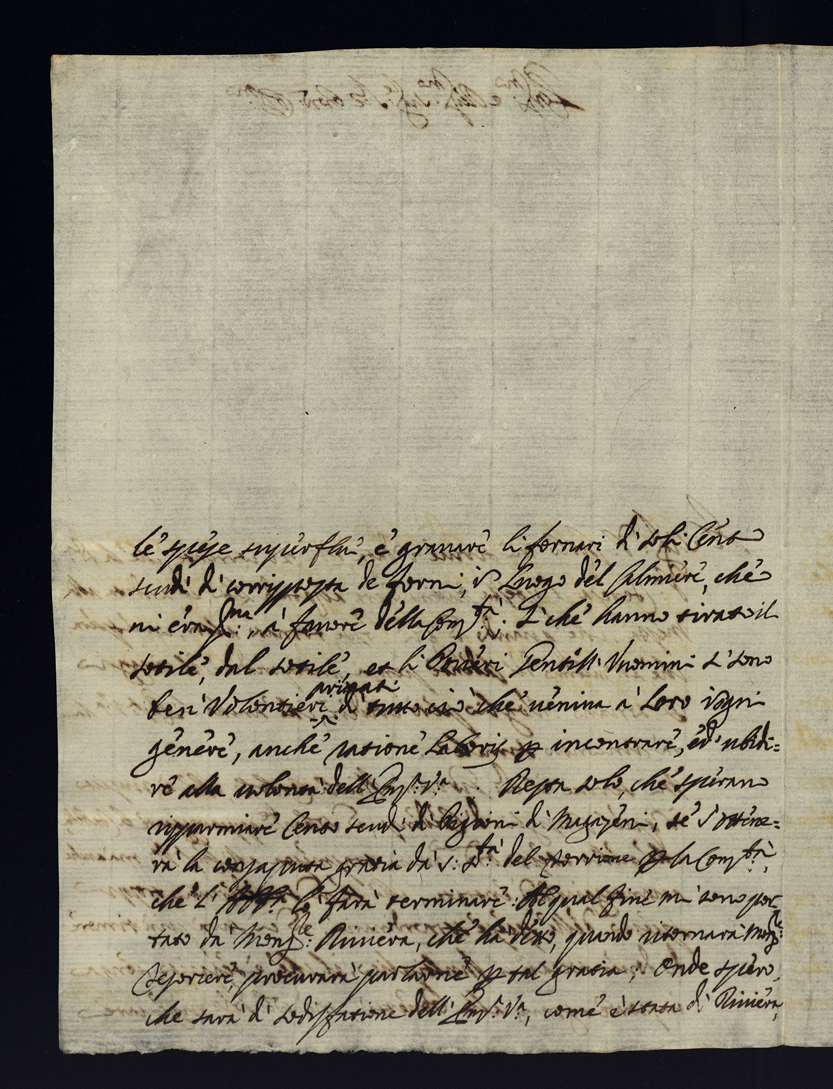 le spese superflue, e gravare li fornari di soli Cento
scudi di corrisposta de forni, in Luogo del Calmiere, che
ni era à favore della Com.tà. Li che hanno tirato il
sotile, dal sotile, et li Poveri Gentill' Vuomini si sono
ben volontieri privati di tutto ciò che veniva à Loro in ogni
genere, anche ratione Laboris p incontrare, ed ubidi=
re alla volontà dell' Em. V.a. Resta solo, che sperano
rispurmiare Cento scudi di Piggioni di Magazeni, se s'ottene=
rà la gratia da S. S.tà del torrione p la Com.tà,
che l' farà terminare. Al qual fine mi sono por
tato da Mons.re Riviera, che hà detto, quando ritornarà Mons.re
procurarà parlarne p tal gratia; Onde spero,
che sarà di sodisfatione dell' Em. V.a, come è stata di Riviera,